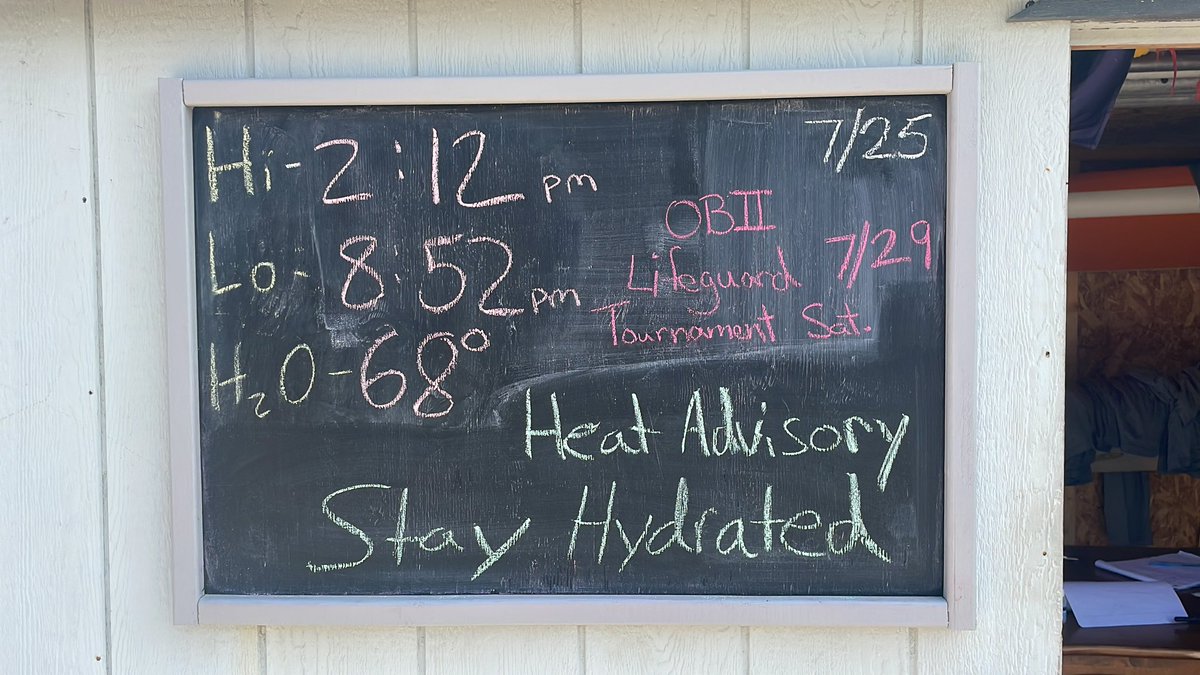 7/25
Hi - 2:12 pm
Lo - 8:52 pm
H₂O - 68°
OBII
Lifeguard 7/29
Tournament Sat.
Heat Advisory
Stay Hydrated